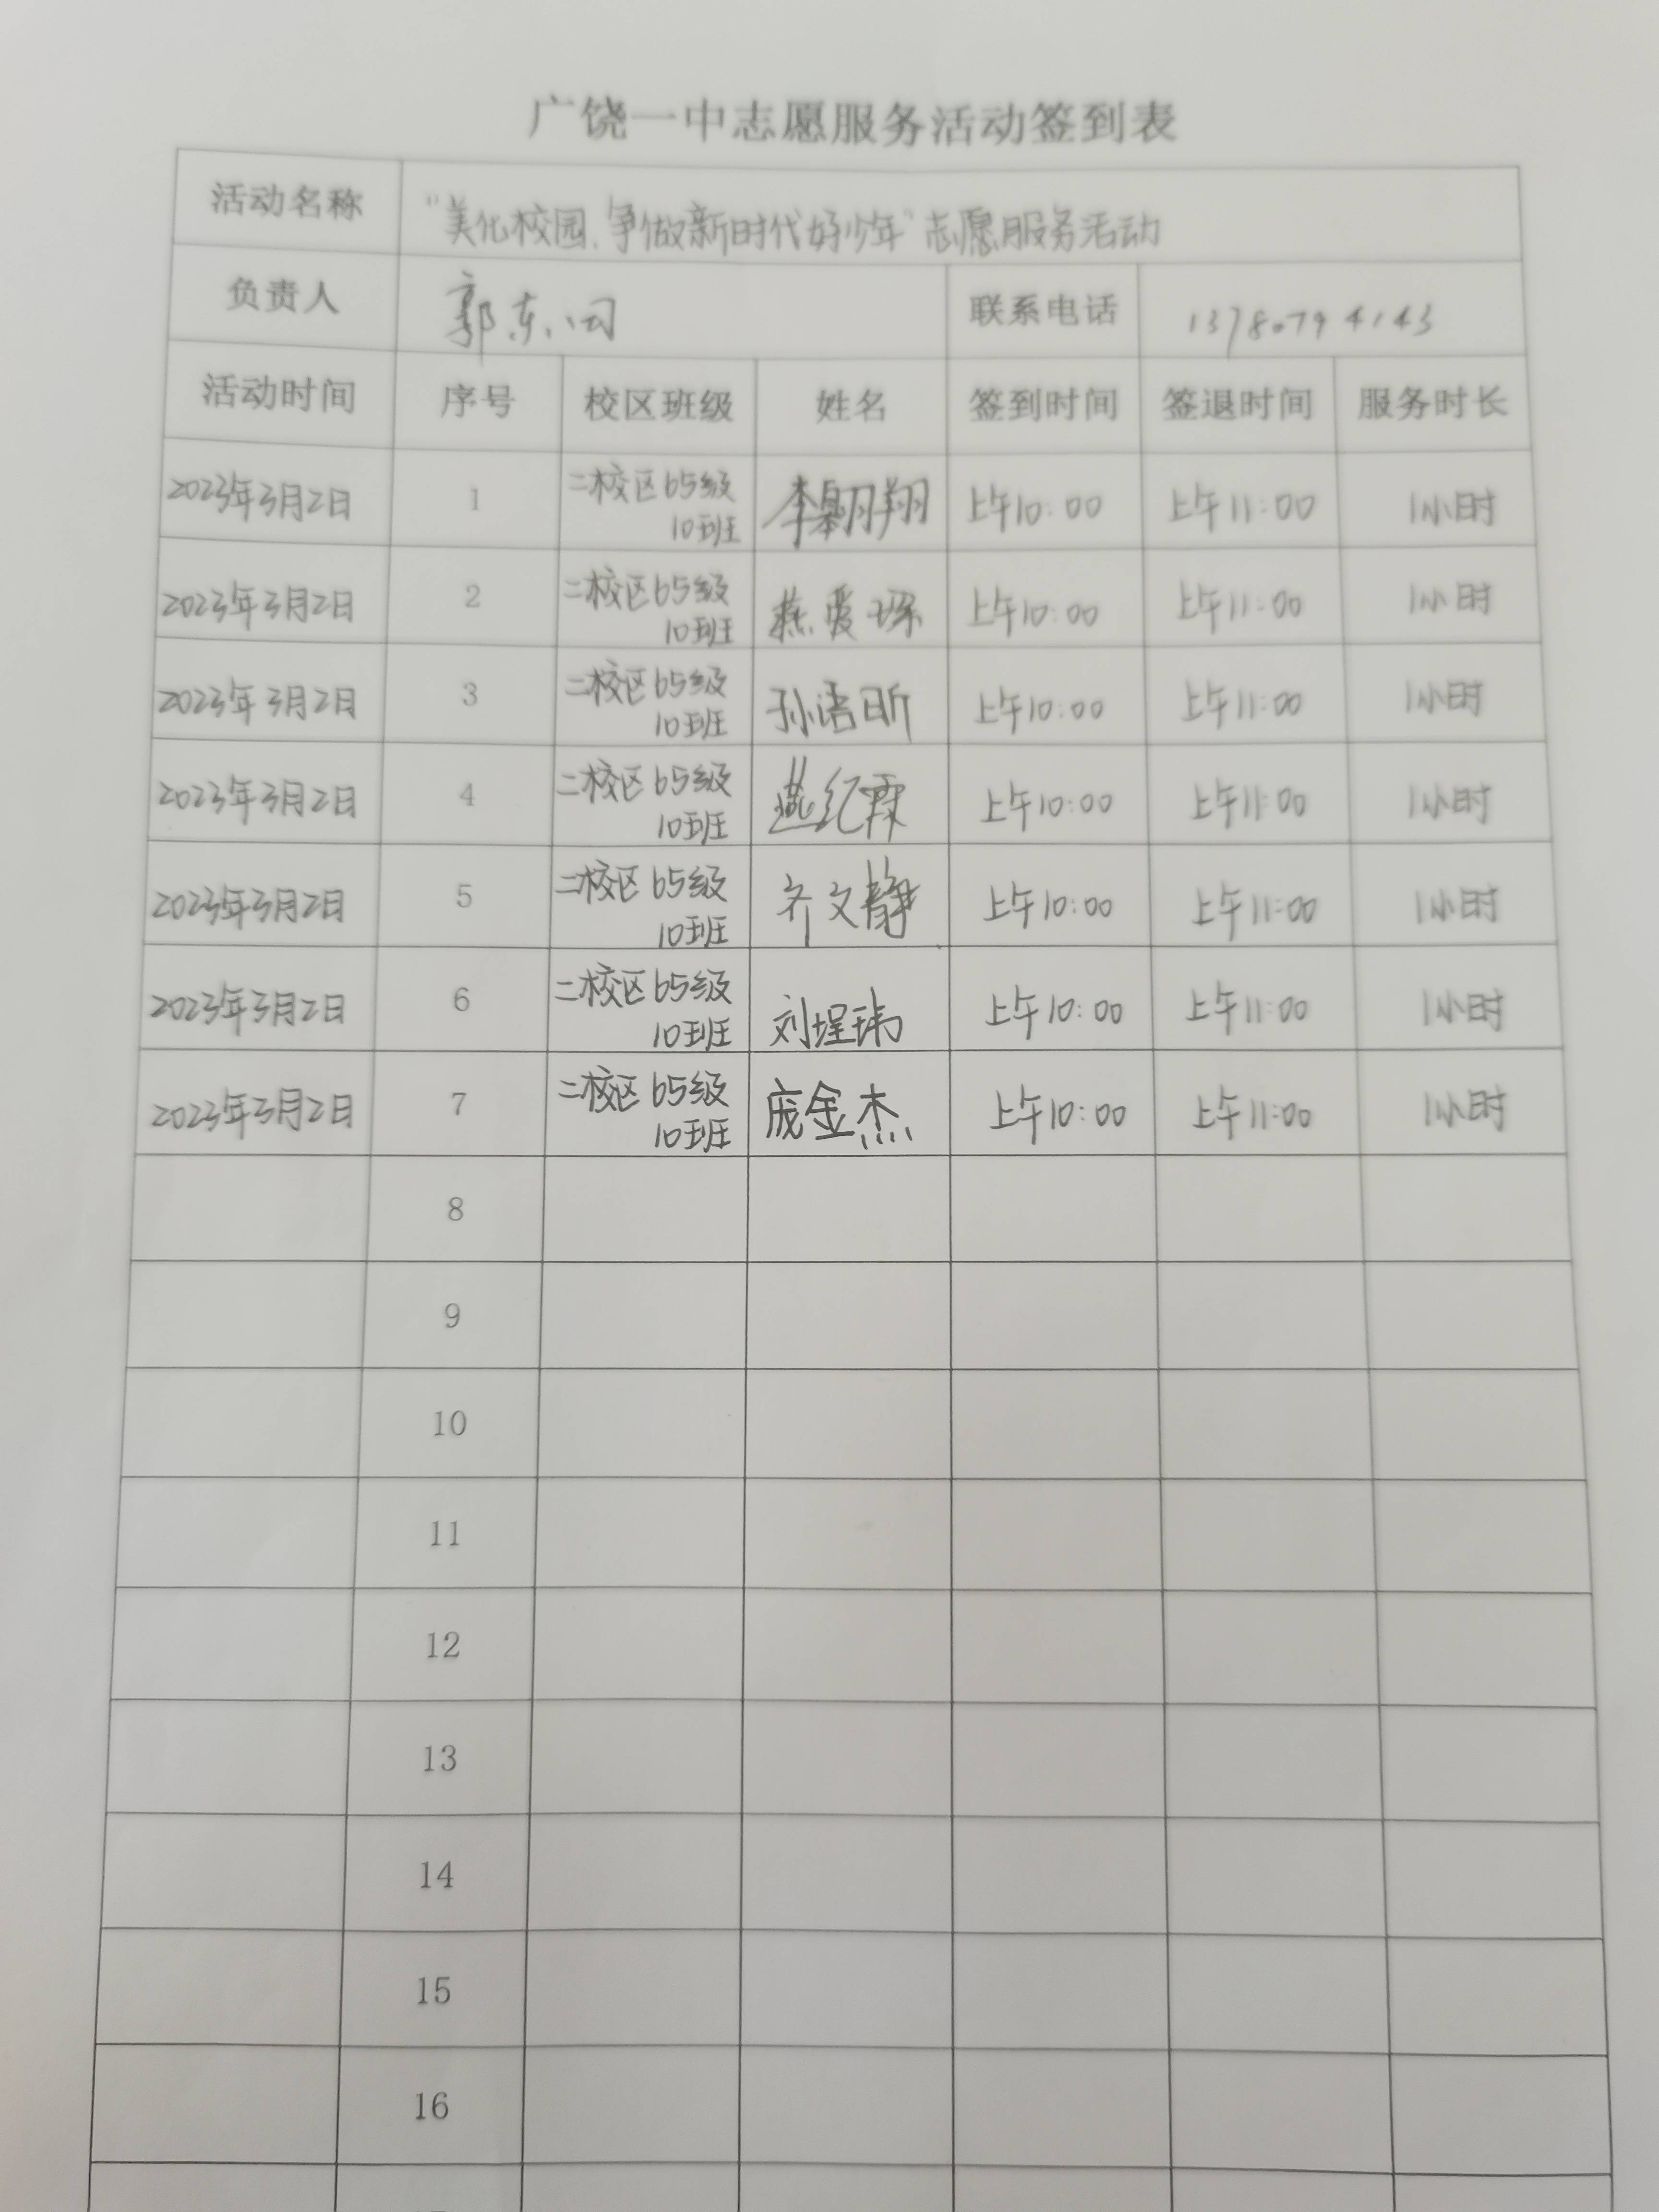 广饶一中志愿服务活动签到表
活动名称 "美化校园、争做新时代好少年"志愿服务活动
负责人 郭东 联系电话 13780794143
活动时间 序号 校区班级 姓名 签到时间 签退时间 服务时长
2023年3月2日 1 二校区65级 李翱翔 上午10:00 上午11:00 1小时
10班
2023年3月2日 2 二校区65级 燕爱琛 上午10:00 上午11:00 1小时
10班
2023年3月2日 3 二校区65级 孙浩昕 上午10:00 上午11:00 1小时
10班
2023年3月2日 4 二校区65级 燕纪霖 上午10:00 上午11:00 1小时
10班
2023年3月2日 5 二校区65级 齐文静 上午10:00 上午11:00 1小时
10班
2023年3月2日 6 二校区65级 刘埕玮 上午10:00 上午11:00 1小时
10班
2023年3月2日 7 二校区65级 庞金杰 上午10:00 上午11:00 1小时
10班
8
9
10
11
12
13
14
15
16